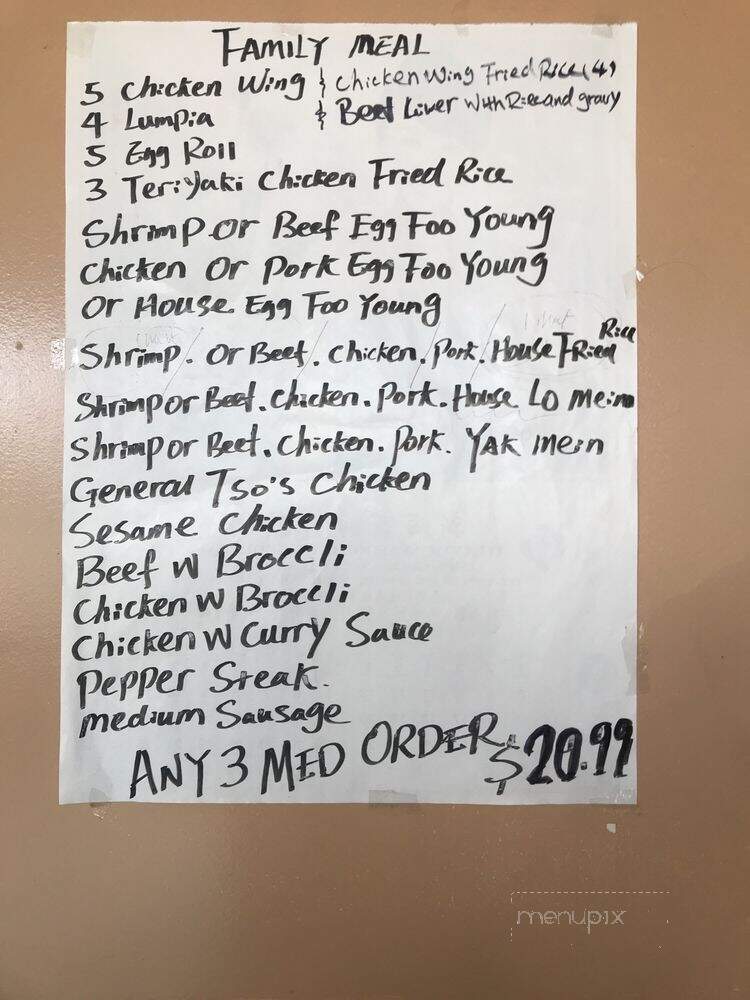 FAMILY MEAL
5 Chicken Wing
4 Lumpia
5 Egg Roll
3 Teriyaki Chicken Fried Rice
Chicken Wing Fried Rice (4)
Beef Liver with Rice and gravy
Shrimp or Beef Egg Foo Young
Chicken Or Pork Egg Foo Young
Or House Egg Foo Young
Shrimp. Or Beef. Chicken. Pork. House Fried Rice
Shrimp or Beef. Chicken. Pork. House Lo mein
Shrimp or Beef. Chicken. Pork. Yak mein
General Tso's Chicken
Sesame Chicken
Beef W Broccli
Chicken W Broccli
Chicken W Curry Sauce
Pepper Steak.
medium Sausage
ANY 3 MED ORDER $20.99
menupix